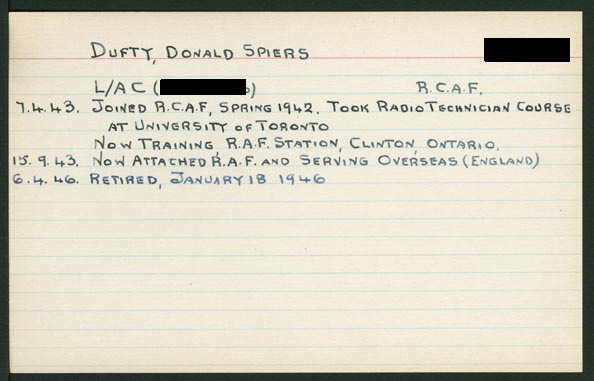 DUFTY, DONALD SPIERS
L/AC ( ) R.C.A.F.
7.4.43. JOINED R.C.A.F., SPRING 1942. TOOK RADIO TECHNICIAN COURSE
AT UNIVERSITY OF TORONTO
NOW TRAINING, R.A.F. STATION, CLINTON, ONTARIO.
15.9.43. NOW ATTACHED R.A.F. AND SERVING OVERSEAS (ENGLAND)
6.4.46. RETIRED, JANUARY 18 1946